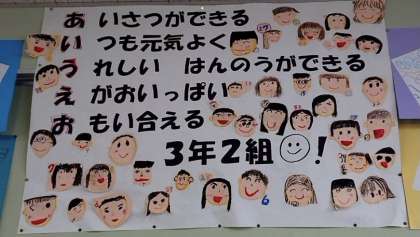 あいさつができる
いつも元気よく
うれしい はんのうができる
えがおいっぱい
おもい合える
3年2組☺!